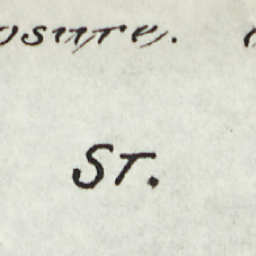 osure.
ST.